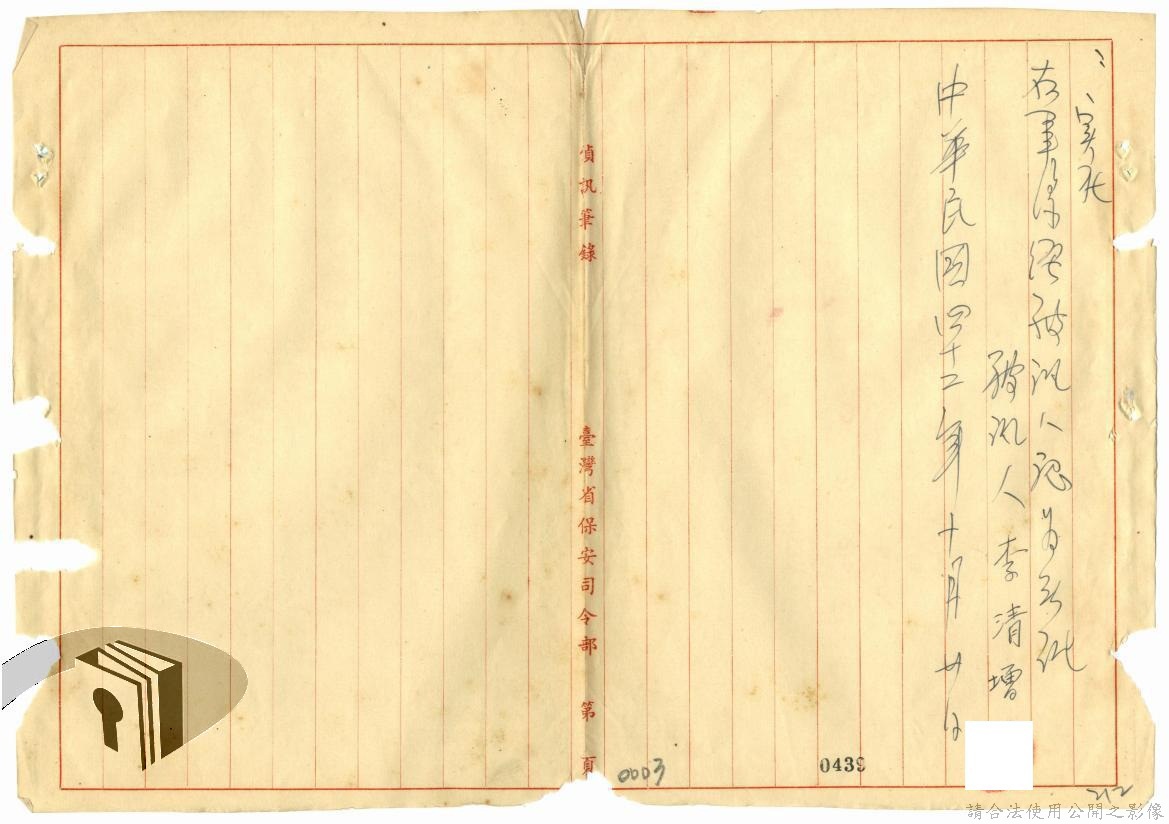 右筆錄經被訊人認為無訛
被訊人 李清增
中華民國四十二年十月廿日
偵訊筆錄 臺灣省保安司令部 第 頁
0439
0003
212
請合法使用公開之影像